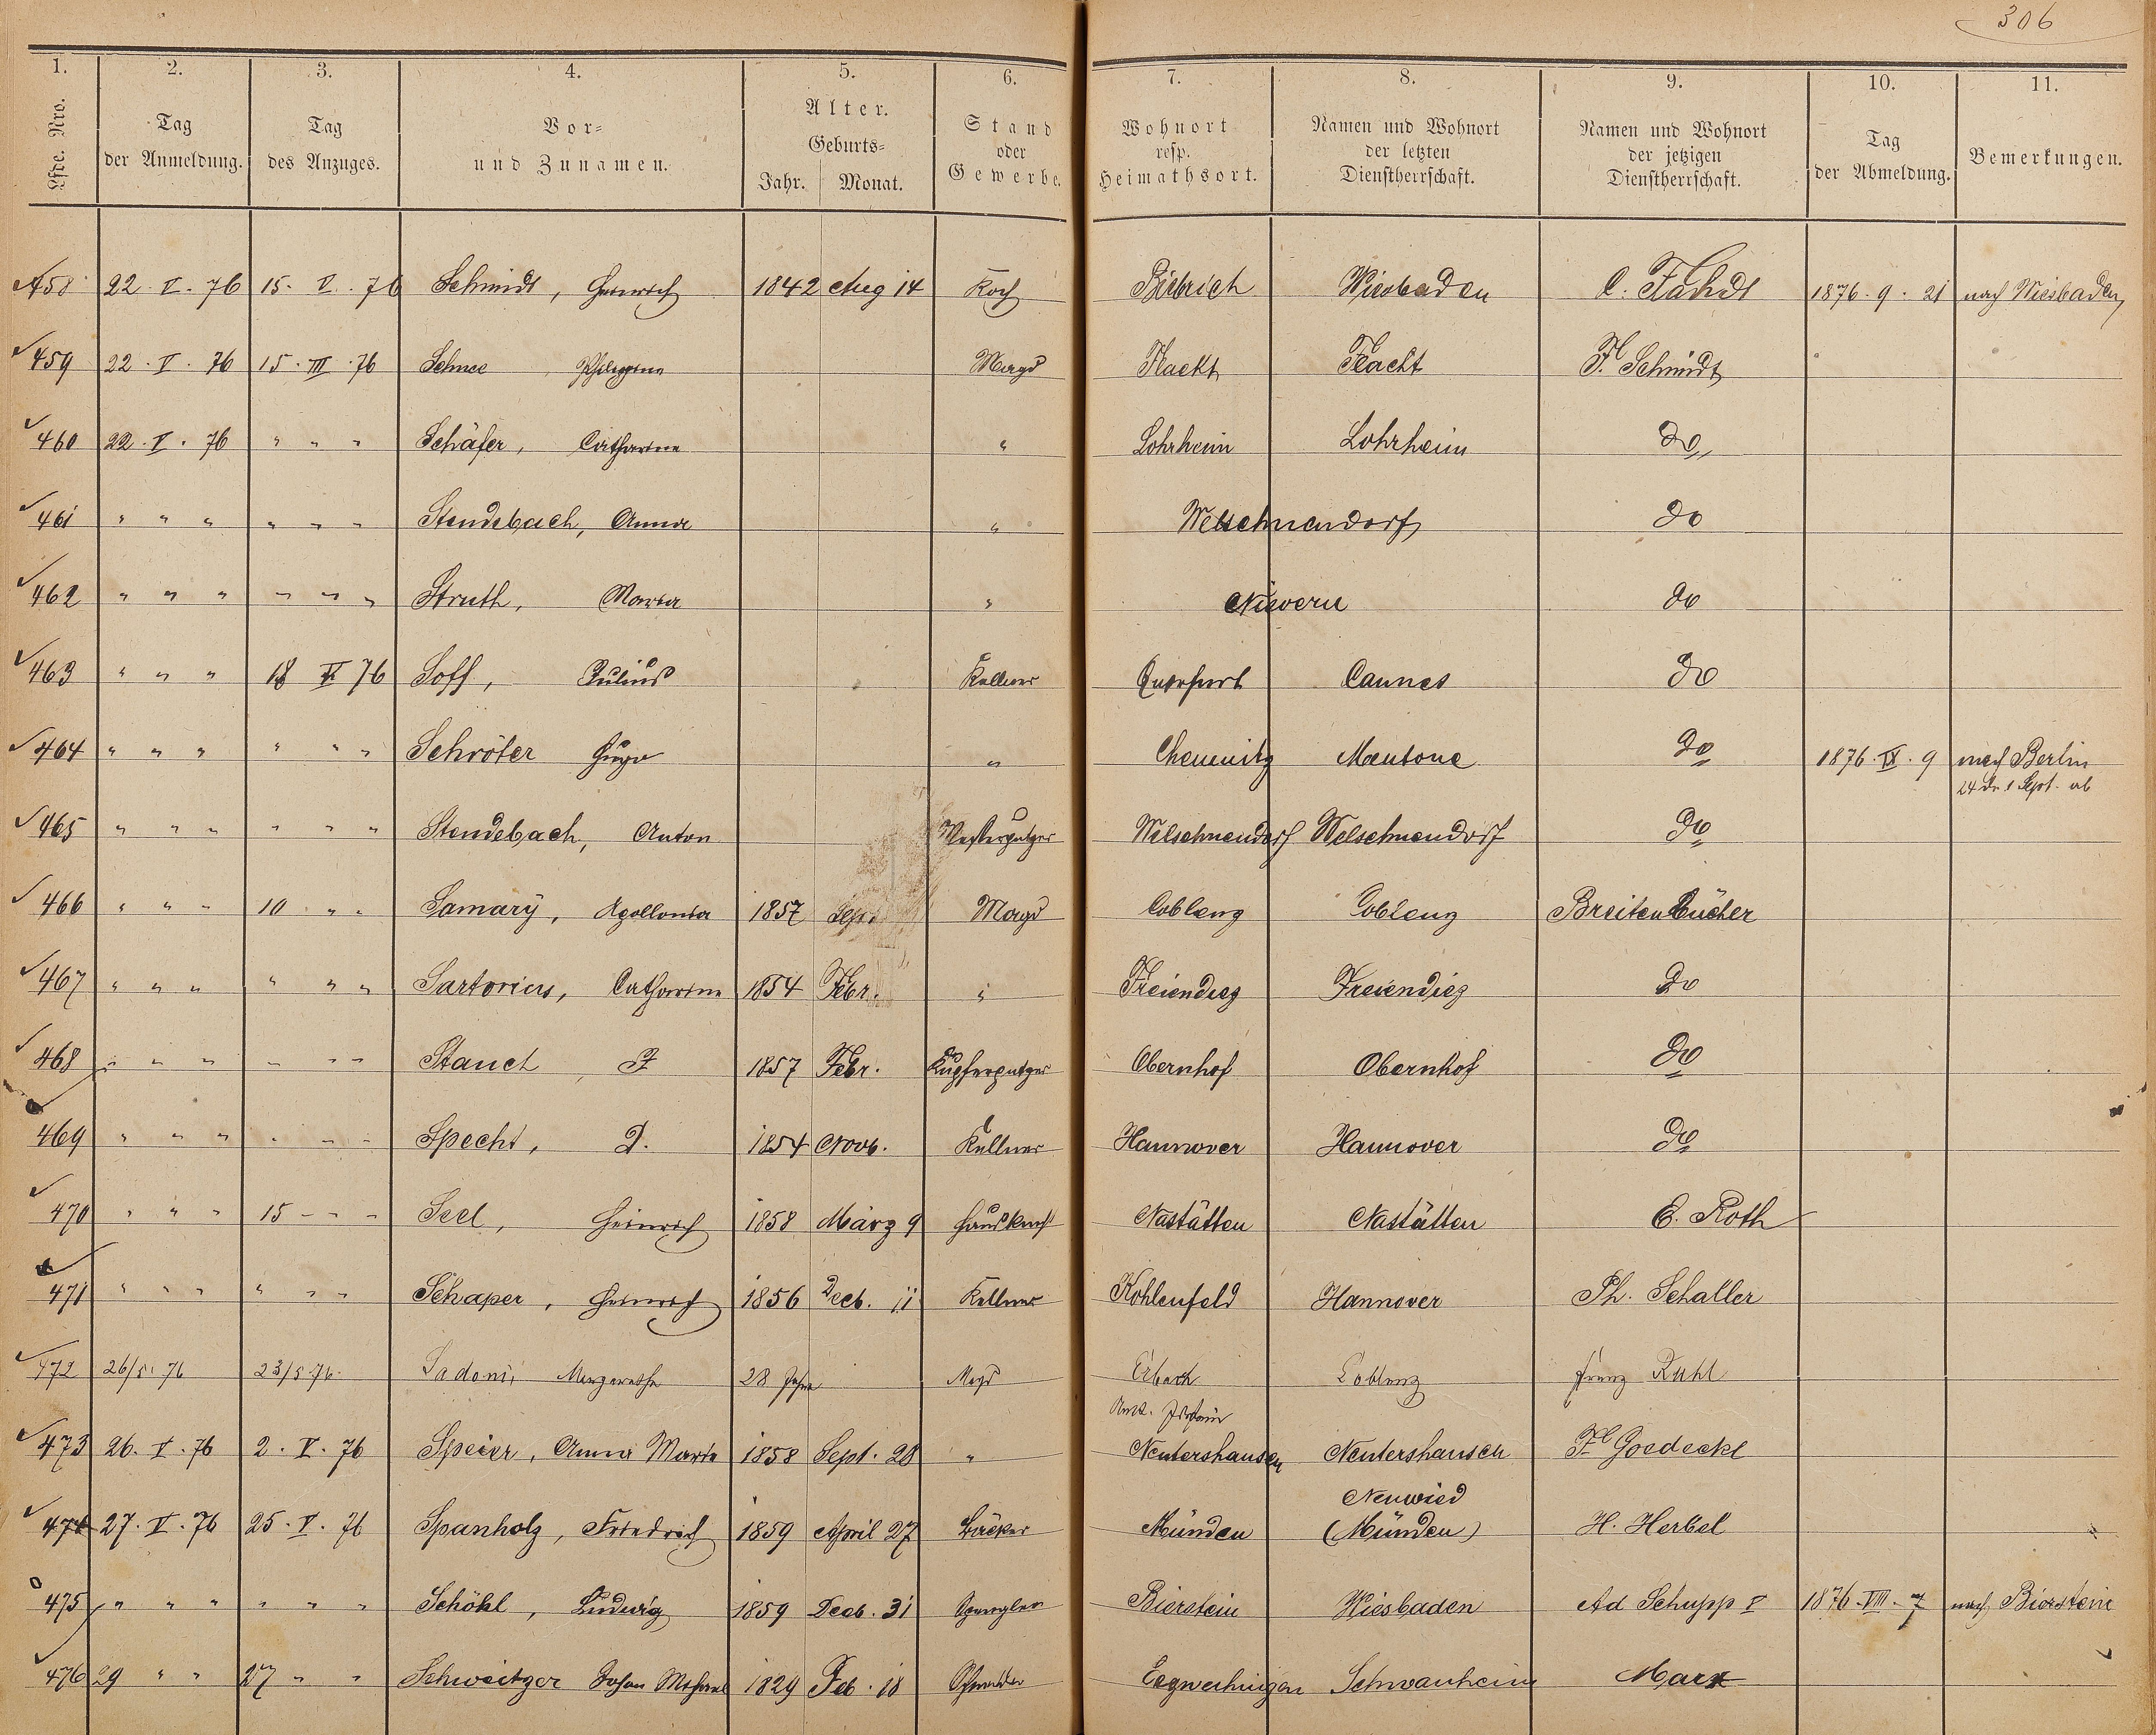 306
1. 2. 3. 4. 5. 6. 7. 8. 9. 10. 11.
Lfde. Nro. Tag der Anmeldung. Tag des Anzuges. Vor= und Zunamen. Alter. Geburts= Jahr. Monat. Stand oder Gewerbe. Wohnort resp. Heimathsort. Namen und Wohnort der letzten Dienstherrschaft. Namen und Wohnort der jetzigen Dienstherrschaft. Tag der Abmeldung. Bemerkungen.
458 22. V. 76 15. V. 76 Schmidt, Heinrich 1842 Aug 14 Koch Biebrich Wiesbaden C. 1876. 9. 21 nach Wiesbaden
459 22. V. 76 15. III. 76 Schnee, Philippine Magd Flacht Flacht F. Schmidt
460 22. V. 76 " " " Schäfer, Catharine " Lohrheim Lohrheim do
461 " " " " " " Stendebach, Anna " Welschneudorf do
462 " " " " " " Struth, Maria " Nievern do
463 " " " 18 V 76 Soff, Julius Kellner Querfurt Cannes do
464 " " " " " " Schröter Hugo " Chemnitz Mentone do 1876. IX. 9 nach Berlin
24 1 Sept. ab
465 " " " " " " Stendebach, Anton Messerputzer Welschneudorf Welschneudorf do
466 " " " 10 " " Samary, Apollonia 1857 Sept. Magd Coblenz Coblenz Breitenbücher
467 " " " " " " Sartorius, Catharine 1854 Febr. " Freiendiez Freiendiez do
468 " " " " " " Stauch, F 1857 Febr. Kupferputzer Obernhof Obernhof do
469 " " " " " " Specht, D. 1854 Novb. Kellner Hannover Hannover do
470 " " " 15 " " Seel, Heinrich 1858 März 9 Hausknecht Nastätten Nastätten E. Roth
471 " " " " " " Schaper, Heinrich 1856 Decb. 11 Kellner Kohlenfeld Hannover Ph. Schaller
472 26/5. 76 23/5. 76. Sadoni, Margarethe 28 Jahre Magd Erbach Coblenz Franz Ruhl
Amt. Idstein
473 26. V. 76 2. V. 76 Speier, Anna Maria 1858 Sept. 28 " Nentershausen Nentershausen Fr Goedecke
Neuwied
474 27. V. 76 25. V. 76 Spanholz, Friedrich 1859 April 27 Bäcker Münden (Münden) H. Herbel
475 " " " " " " Schöhl, Ludwig 1859 Decb. 31 Spengler Bierstein Wiesbaden Ad Schupp I 1876. VIII. 7 nach Bierstein
476 29 " " 27 " " Schweitzer Johan Michael 1829 Feb. 18 Schneider Schwanheim Marx